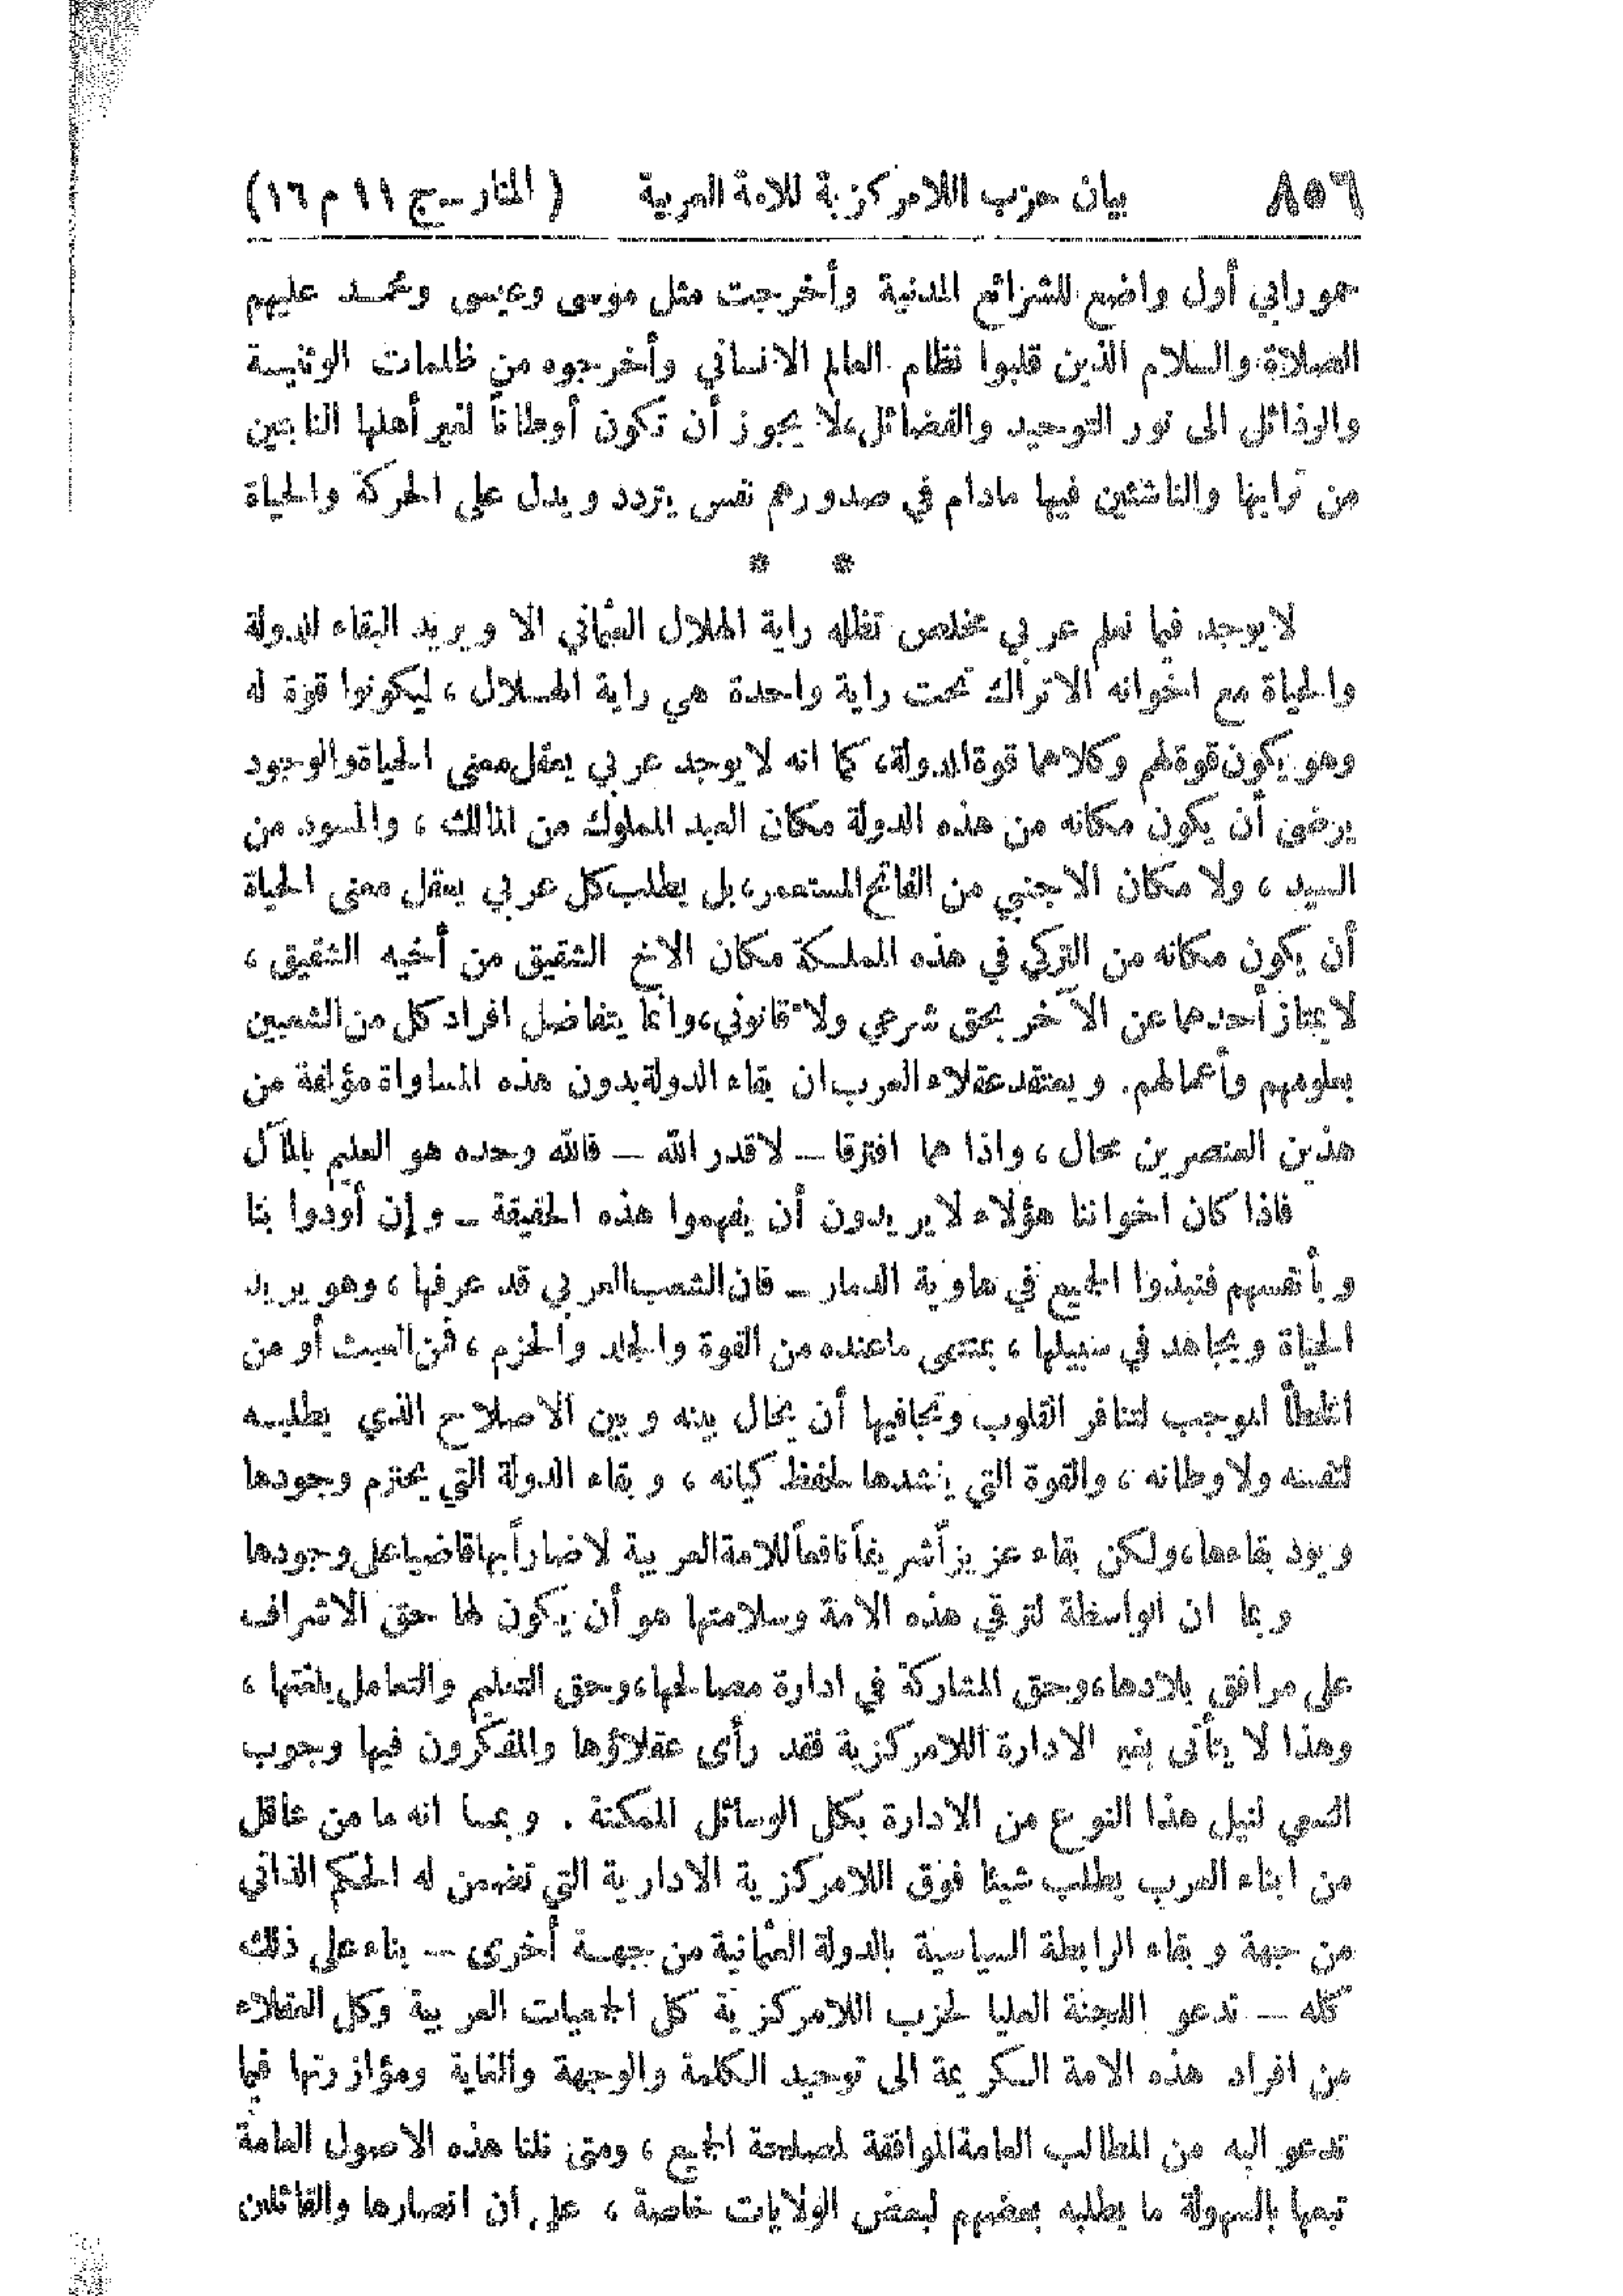 ٨٥٦ بيان حزب اللامركزية للامة العربية (المنار ــ ج ١١ م ١٦)
حمورابي أول واضع للشرائع المدنية وأخرجت مثل موسى وعيسى ومحمد عليهم
الصلاة والسلام الذين قلبوا نظام العالم الانساني وأخرجوه من ظلمات الوثنية
والرذائل الى نور التوحيد والفضائل، لا يجوز أن تكون أوطاناً لغير أهلها النابتين
من ترابها والناشئين فيها مادام في صدورهم نفس يتردد ويدل على الحركة والحياة
* *
لا يوجد فيما نعلم عربي مخلص تظله راية الهلال العثماني الا ويريد البقاء للدولة
والحياة مع اخوانه الاتراك تحت راية واحدة هي راية الهلال ، ليكونوا قوة له
وهو يكون قوة لهم وكلاهما قوة الدولة، كما انه لا يوجد عربي يعقل معنى الحياة والوجود
يرضى أن يكون مكانه من هذه الدولة مكان العبد المملوك من المالك ، والمسود من
السيد ، ولا مكان الاجنبي من الفاتح المستعمر، بل يطلب كل عربي يعقل معنى الحياة
أن يكون مكانه من التركي في هذه المملكة مكان الاخ الشقيق من أخيه الشقيق ،
لا يمتاز أحدهما عن الآخر بحق شرعي ولا قانوني، وانما يتفاضل افراد كل من الشعبين
بعلومهم وأعمالهم. ويعتقد عقلاء العرب ان بقاء الدولة بدون هذه المساواة مؤلفة من
هذين العنصرين محال ، واذا هما افترقا ــ لا قدر الله ــ فالله وحده هو العليم بالمآل
فاذا كان اخواننا هؤلاء لا يريدون أن يفهموا هذه الحقيقة ــ وإن أودوا بنا
وبأنفسهم فنبذوا الجميع في هاوية الدمار ــ فان الشعب العربي قد عرفها ، وهو يريد
الحياة ويجاهد في سبيلها ، بمنتهى ماعنده من القوة والجلد والحزم ، فمن العبث أو من
الخطأ الموجب لتنافر القلوب وتجافيها أن يحال بينه وبين الاصلاح الذي يطلبه
لنفسه ولاوطانه ، والقوة التي ينشدها لحفظ كيانه ، وبقاء الدولة التي يحترم وجودها
ويود بقاءها، ولكن بقاء عزيزاً شريفاً نافعاً للامة العربية لا ضاراً بها قاضيا على وجودها
وبما ان الواسطة لترقي هذه الامة وسلامتها هو أن يكون لها حق الاشراف
على مرافق بلادها، وحق المشاركة في ادارة مصالحها، وحق التعليم والتعامل بلغتها ،
وهذا لا يتأتى بغير الادارة اللامركزية فقد رأى عقلاؤها والمفكرون فيها وجوب
السعي لنيل هذا النوع من الادارة بكل الوسائل الممكنة . وبما انه ما من عاقل
من ابناء العرب يطلب شيئا فوق اللامركزية الادارية التي تضمن له الحكم الذاتي
من جهة وبقاء الرابطة السياسية بالدولة العثمانية من جهة أخرى ــ بناء على ذلك
كله ــ تدعو اللجنة العليا لحزب اللامركزية كل الجمعيات العربية وكل العقلاء
من افراد هذه الامة الكريمة الى توحيد الكلمة والوجهة والغاية ومؤازرتها فيما
تدعو اليه من المطالب العامة الموافقة لمصلحة الجميع ، ومتى نلنا هذه الاصول العامة
تبعها بالسهولة ما يطلبه بعضهم لبعض الولايات خاصة ، على أن انصارها والقائلين